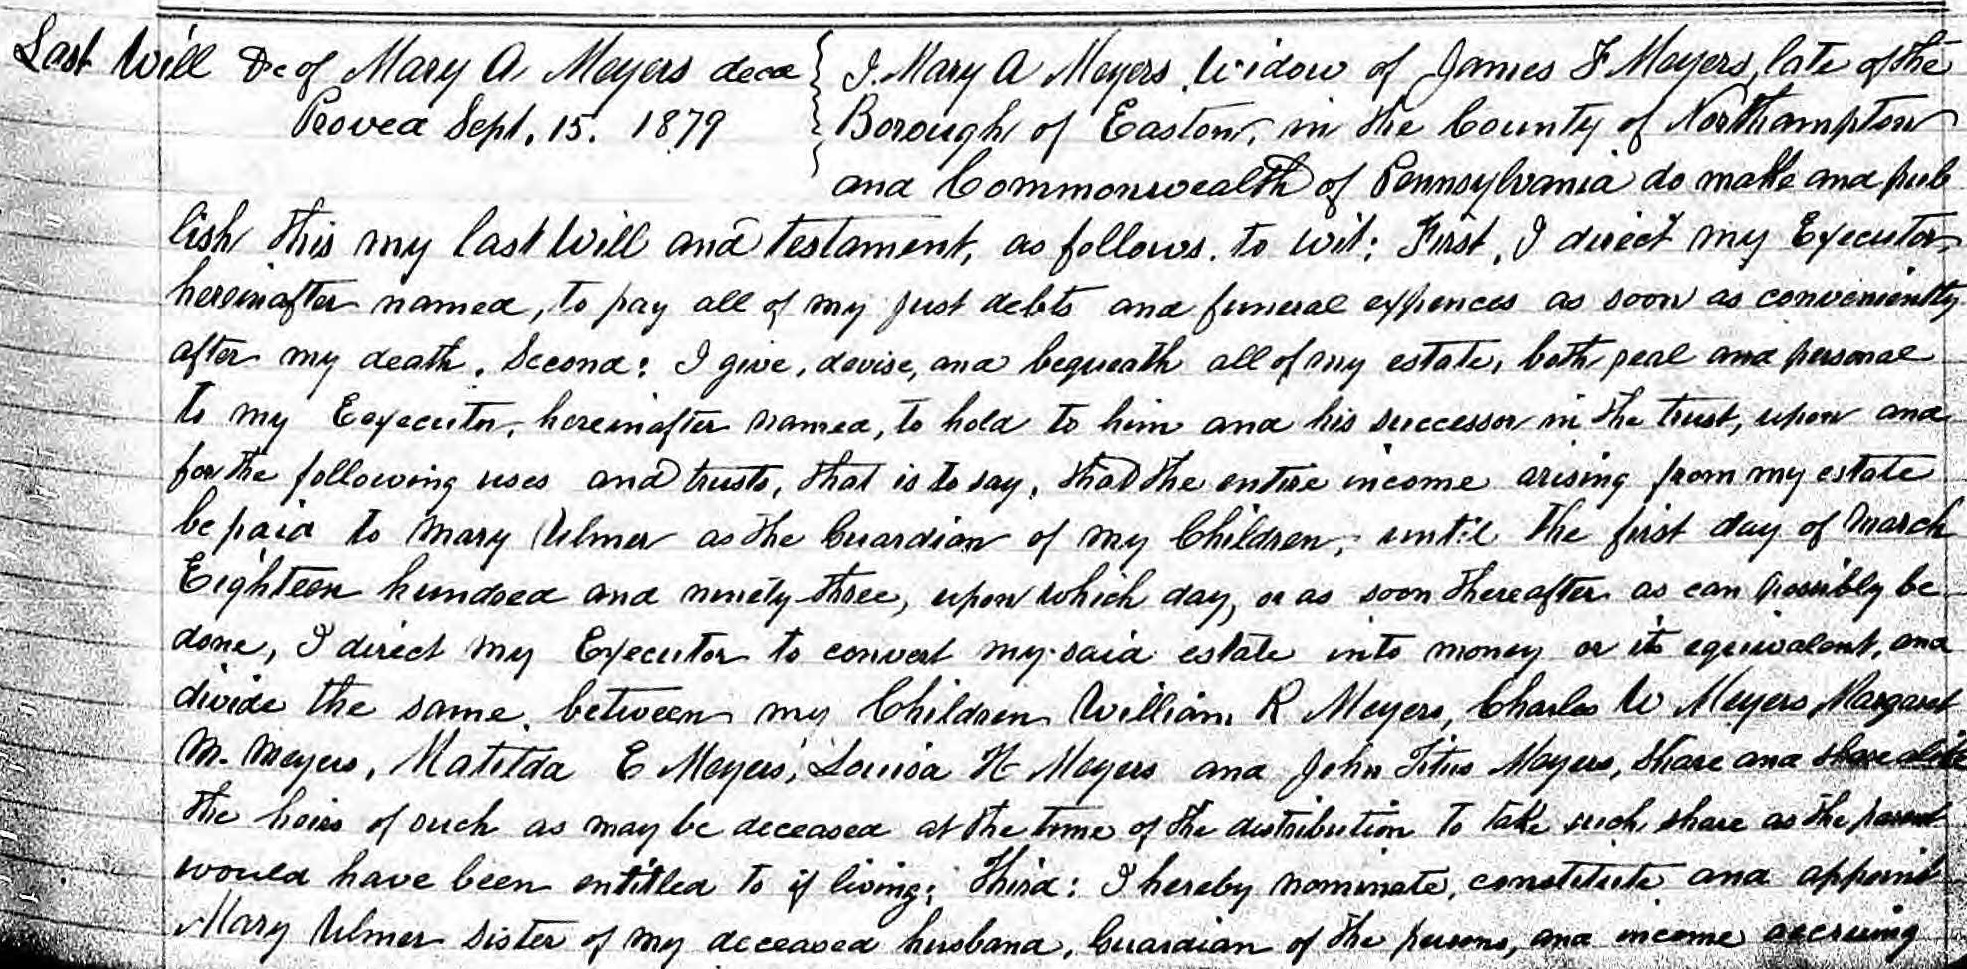 Last Will &c of Mary A Meyers decd
Proved Sept. 15. 1879
I. Mary A Meyers, Widow of James F Meyers, late of the
Borough of Easton, in the County of Northampton
and Commonwealth of Pennsylvania do make and pub
lish this my last Will and testament, as follows. to wit: First, I direct my Executor
hereinafter named, to pay all of my just debts and funeral expences as soon as conveniently
after my death. Second: I give, devise, and bequeath all of my estate, both real and personal
to my Executor, hereinafter named, to hold to him and his successor in the trust, upon and
for the following uses and trusts, that is to say, that the entire income arising from my estate
be paid to Mary Ulmer as the Guardian of my Children, until the first day of March
Eighteen hundred and ninety-three, upon which day, or as soon thereafter as can possibly be
done, I direct my Executor to convert my said estate into money or its equivalent, and
divide the same, between my Children William R Meyers, Charles W Meyers, Margaret
M. Meyers, Matilda E Meyers, Louisa H Meyers and John Titus Meyers, share and share alike
the heirs of such as may be deceased at the time of the distribution to take such share as the parent
would have been entitled to if living; Third: I hereby nominate, constitute and appoint
Mary Ulmer sister of my deceased husband, Guardian of the persons, and income accruing